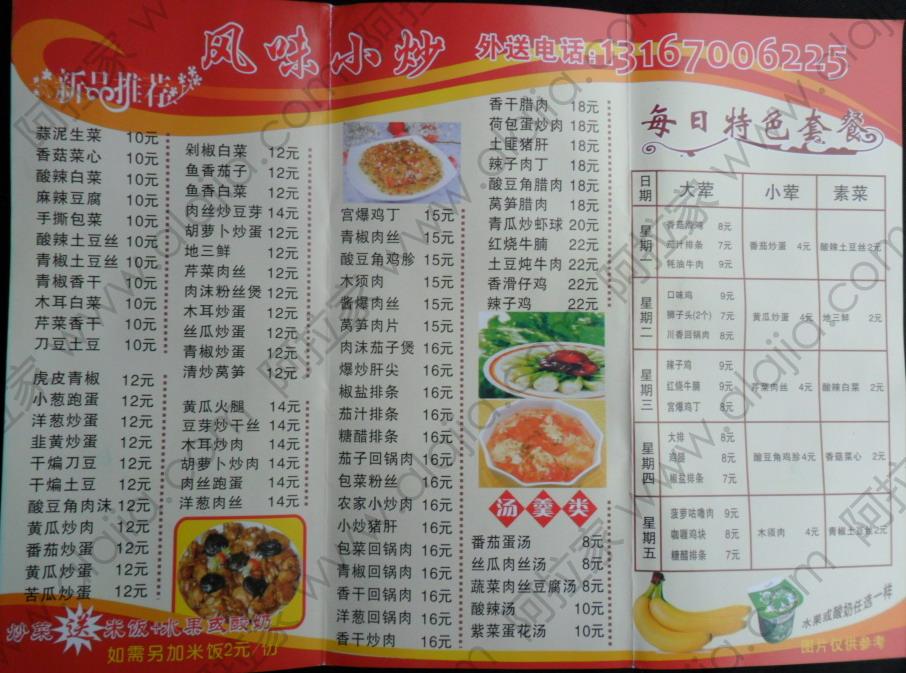 风味小炒
外送电话:13167006225
新品推荐
蒜泥生菜 10元
香菇菜心 10元
酸辣白菜 10元
麻辣豆腐 10元
手撕包菜 10元
酸辣土豆丝 10元
青椒土豆丝 10元
青椒香干 10元
木耳白菜 10元
芹菜香干 10元
刀豆土豆 10元
虎皮青椒 12元
小葱跑蛋 12元
洋葱炒蛋 12元
韭黄炒蛋 12元
干煸刀豆 12元
干煸土豆 12元
酸豆角肉沫 12元
黄瓜炒肉 12元
番茄炒蛋 12元
黄瓜炒蛋 12元
苦瓜炒蛋 12元
剁椒白菜 12元
鱼香茄子 12元
鱼香白菜 12元
肉丝炒豆芽 14元
胡萝卜炒蛋 12元
地三鲜 12元
芹菜肉丝 12元
肉沫粉丝煲 12元
木耳炒蛋 12元
丝瓜炒蛋 12元
青椒炒蛋 12元
清炒莴笋 12元
黄瓜火腿 14元
豆芽炒干丝 14元
木耳炒肉 14元
胡萝卜炒肉 14元
肉丝跑蛋 14元
洋葱肉丝 14元
宫爆鸡丁 15元
青椒肉丝 15元
酸豆角鸡胗 15元
木须肉 15元
酱爆肉丝 15元
莴笋肉片 15元
肉沫茄子煲 16元
爆炒肝尖 16元
椒盐排条 16元
茄汁排条 16元
糖醋排条 16元
茄子回锅肉 16元
包菜粉丝 16元
农家小炒肉 16元
小炒猪肝 16元
包菜回锅肉 16元
青椒回锅肉 16元
香干回锅肉 16元
洋葱回锅肉 16元
香干炒肉 16元
香干腊肉 18元
荷包蛋炒肉 18元
土匪猪肝 18元
辣子肉丁 18元
酸豆角腊肉 18元
莴笋腊肉 18元
青瓜炒虾球 20元
红烧牛腩 22元
土豆炖牛肉 22元
香滑仔鸡 22元
辣子鸡 22元
汤羹类
番茄蛋汤 8元
丝瓜肉丝汤 8元
蔬菜肉丝豆腐汤 8元
酸辣汤 10元
紫菜蛋花汤 10元
每日特色套餐
日期 大荤 小荤 素菜
星期一
8元
茄汁排条 7元
蚝油牛肉 9元
番茄炒蛋 4元
酸辣土豆丝 2元
星期二
口味鸡 9元
狮子头(2个) 7元
川香回锅肉 8元
黄瓜炒蛋 4元
地三鲜 2元
星期三
辣子鸡 9元
红烧牛腩 9元
宫爆鸡丁 8元
芹菜肉丝 4元
酸辣白菜 2元
星期四
大排 8元
8元
椒盐排条 7元
酸豆角鸡胗 4元
香菇菜心 2元
星期五
菠萝咕噜肉 9元
咖喱鸡块 8元
糖醋排条 7元
木须肉 4元
青椒土豆丝 2元
水果或酸奶任选一样
图片仅供参考
炒菜送米饭+水果或酸奶
如需另加米饭2元/份
阿拉家 www.alajia.com